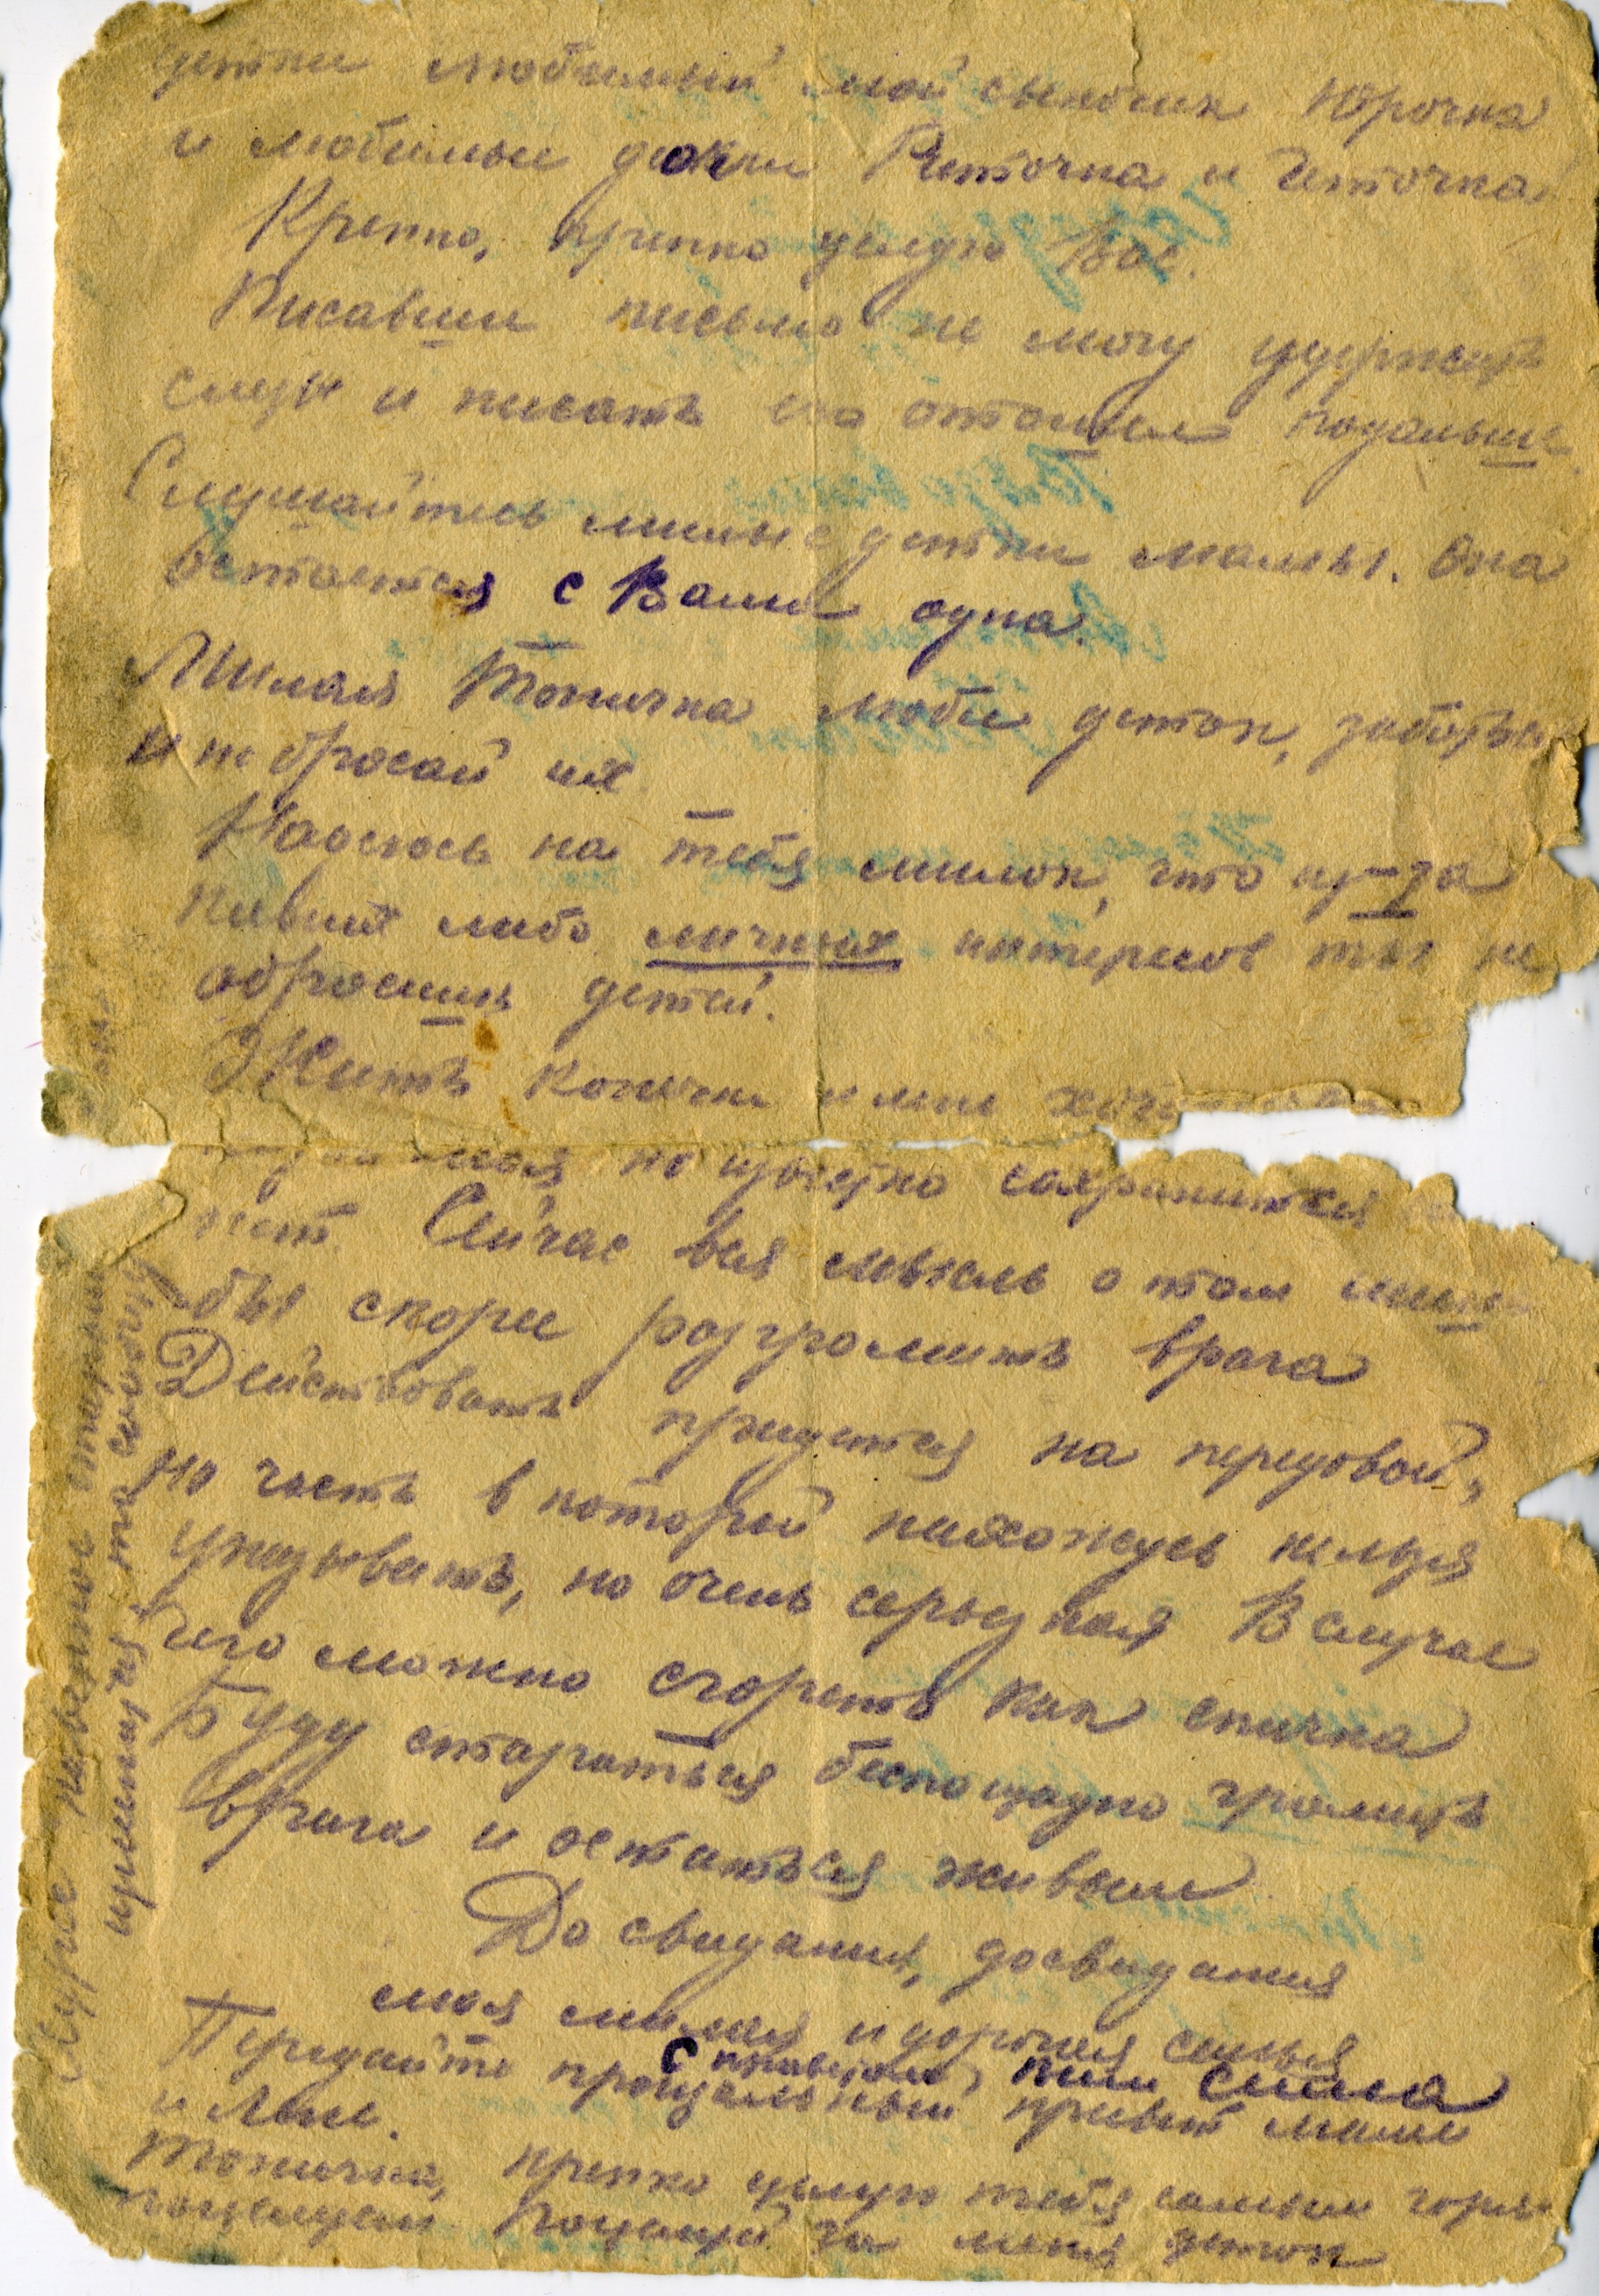 детки любимый мой сыночик Юрочка
и любимыи дочки Риточка и Иточка
Крепко, крепко целую Вас.
Писавши письмо не могу удержать
слезы и писать его отошел подальше.
Слушайтесь милые детки мамы. Она
остается с Вами одна.
Милая Тоничка люби деток, заботься
и не бросай их
Надеюсь на тебя милок, что из-за
какихт либо личных интересов ты не
обросишь детей.
Жить конечно и мне
но известно сохранится
нет. Сейчас вся мысль о том
бы скорее разгромить врага
Действовать придется на передовой,
но часть в которой нахожусь нельзя
указывать, но очень серьезная В случае
чего можно сгореть как спичка
Буду стараться беспощадно громить
врага и остаться живым
До свидания, досвидания
моя милая и дорогая семья
С приветом, папа Сима
Передайте прощальный привет маме
и Лиле.
Тоничка, крепко целую тебя самым
поцелуем Поцелуй за меня деток